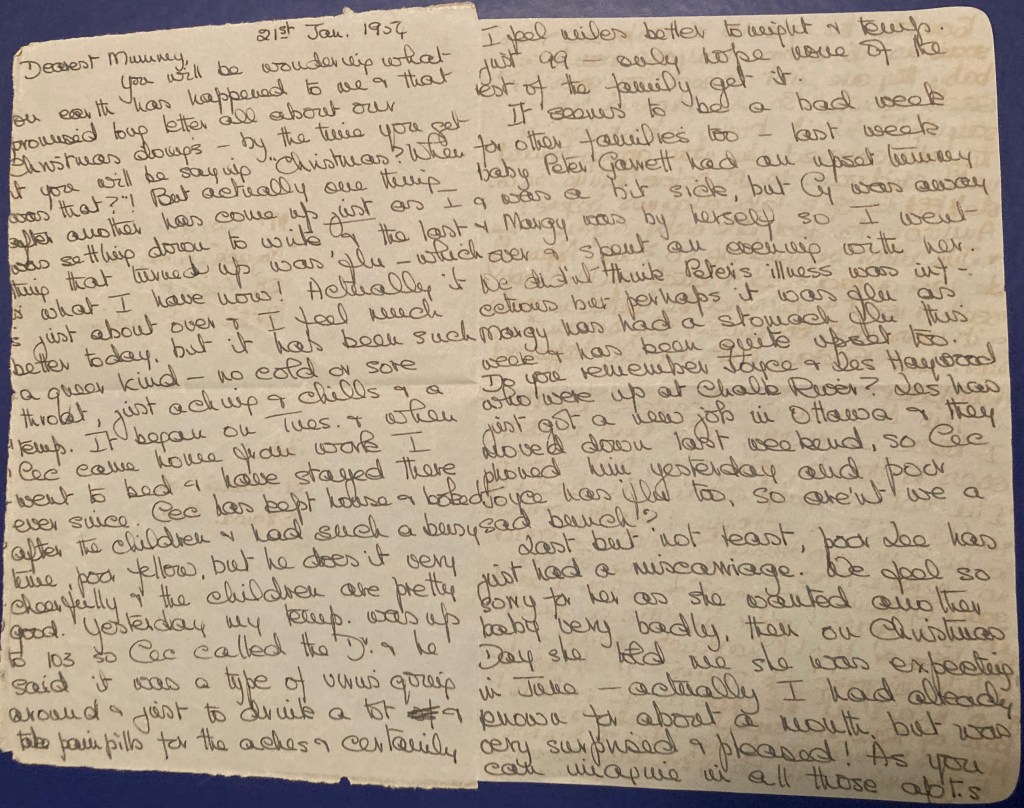 21st Jan. 1954
Dearest Mummy,
You will be wondering what
on earth has happened to me & that
promised long letter all about our
Christmas doings – by the time you get
it you will be saying "Christmas? When
was that?"! But actually one thing
after another has come up just as I
was settling down to write & the last
thing that turned up was 'flu – which
is what I have now! Actually it
is just about over & I feel much
better today, but it has been such
a queer kind – no cold or sore
throat, just aching & chills & a
temp. It began on Tues. & when
Cec came home from work I
went to bed & have stayed there
ever since. Cec has kept house & looked
after the children & had such a busy
time, poor fellow, but he does it very
cheerfully & the children are pretty
good. Yesterday my temp. was up
to 103 so Cec called the Dr. & he
said it was a type of virus going
around & just to drink a lot &
take pain pills for the aches & certainly
I feel miles better tonight & temp.
just 99 – only hope none of the
rest of the family get it.
It seems to be a bad week
for other families too – last week
baby Peter Garrett had an upset tummy
& was a bit sick, but Cy was away
& Margy was by herself so I went
over & spent an evening with her.
We didn't think Peter's illness was inf-
ectious but perhaps it was flu as
Margy has had a stomach flu this
week & has been quite upset too.
Do you remember Joyce & Les Haywood
who were up at Chalk River? Les has
just got a new job in Ottawa & they
moved down last weekend, so Cec
phoned him yesterday and poor
Joyce has 'flu too, so are'nt we a
sad bunch?
Last but not least, poor Lee has
just had a miscarriage. We feel so
sorry for her as she wanted another
baby very badly, then on Christmas
Day she told me she was expecting
in June – actually I had already
known for about a month, but was
very surprised & pleased! As you
can imagine in all those apt.s